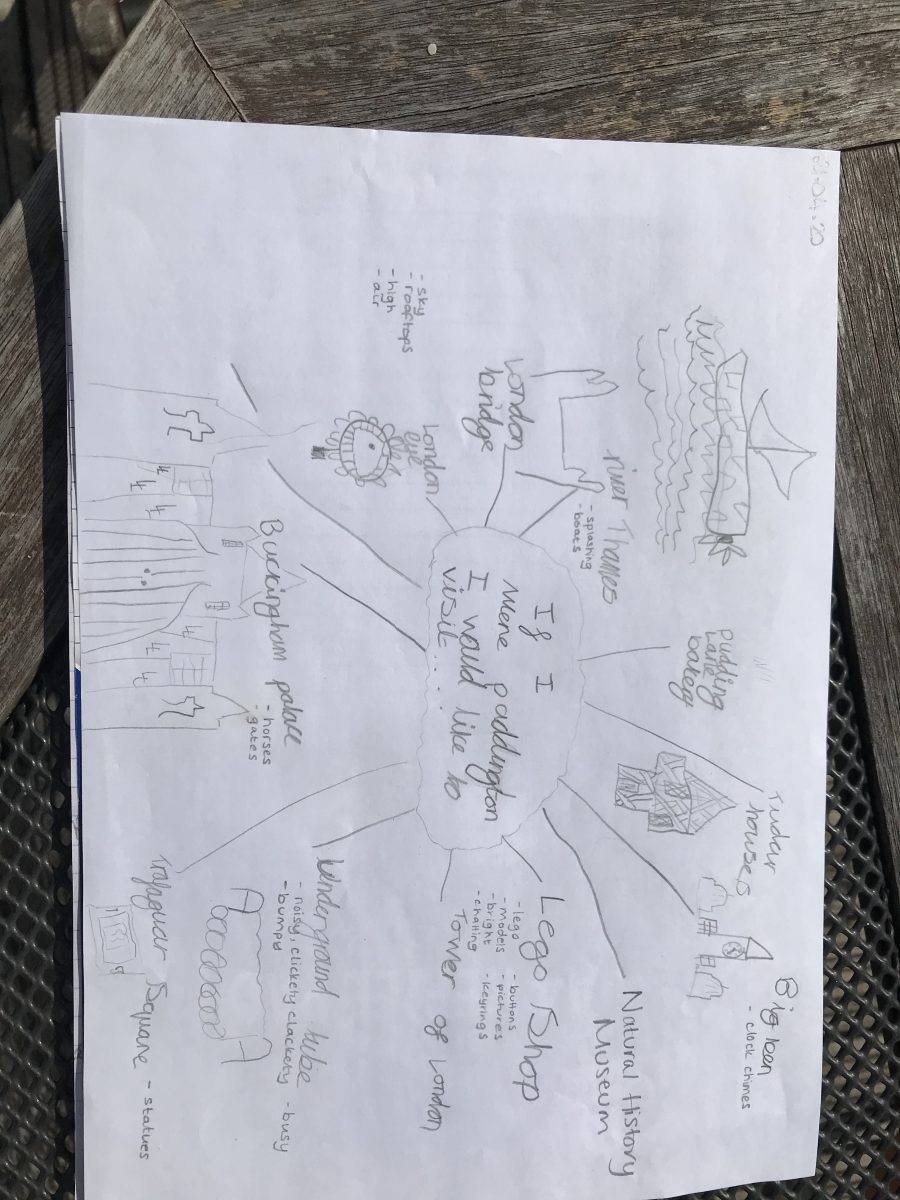 If I
were paddington
I would like to
visit....
river Thames
- splashing
- boats
pudding
Lane
bakery
Tudor
houses
Big Ben
- clock chimes
Natural History
Museum
Lego Shop
- lego
- models
- bright
- chatting
- buttons
- pictures
- keyrings
Tower of London
Underground tube
- noisy, clickety clackety - busy
- bumpy
Trafalguar Square - statues
Buckingham palace
- horses
- gates
London
eye
- sky
- rooftops
- high
- air
London
bridge